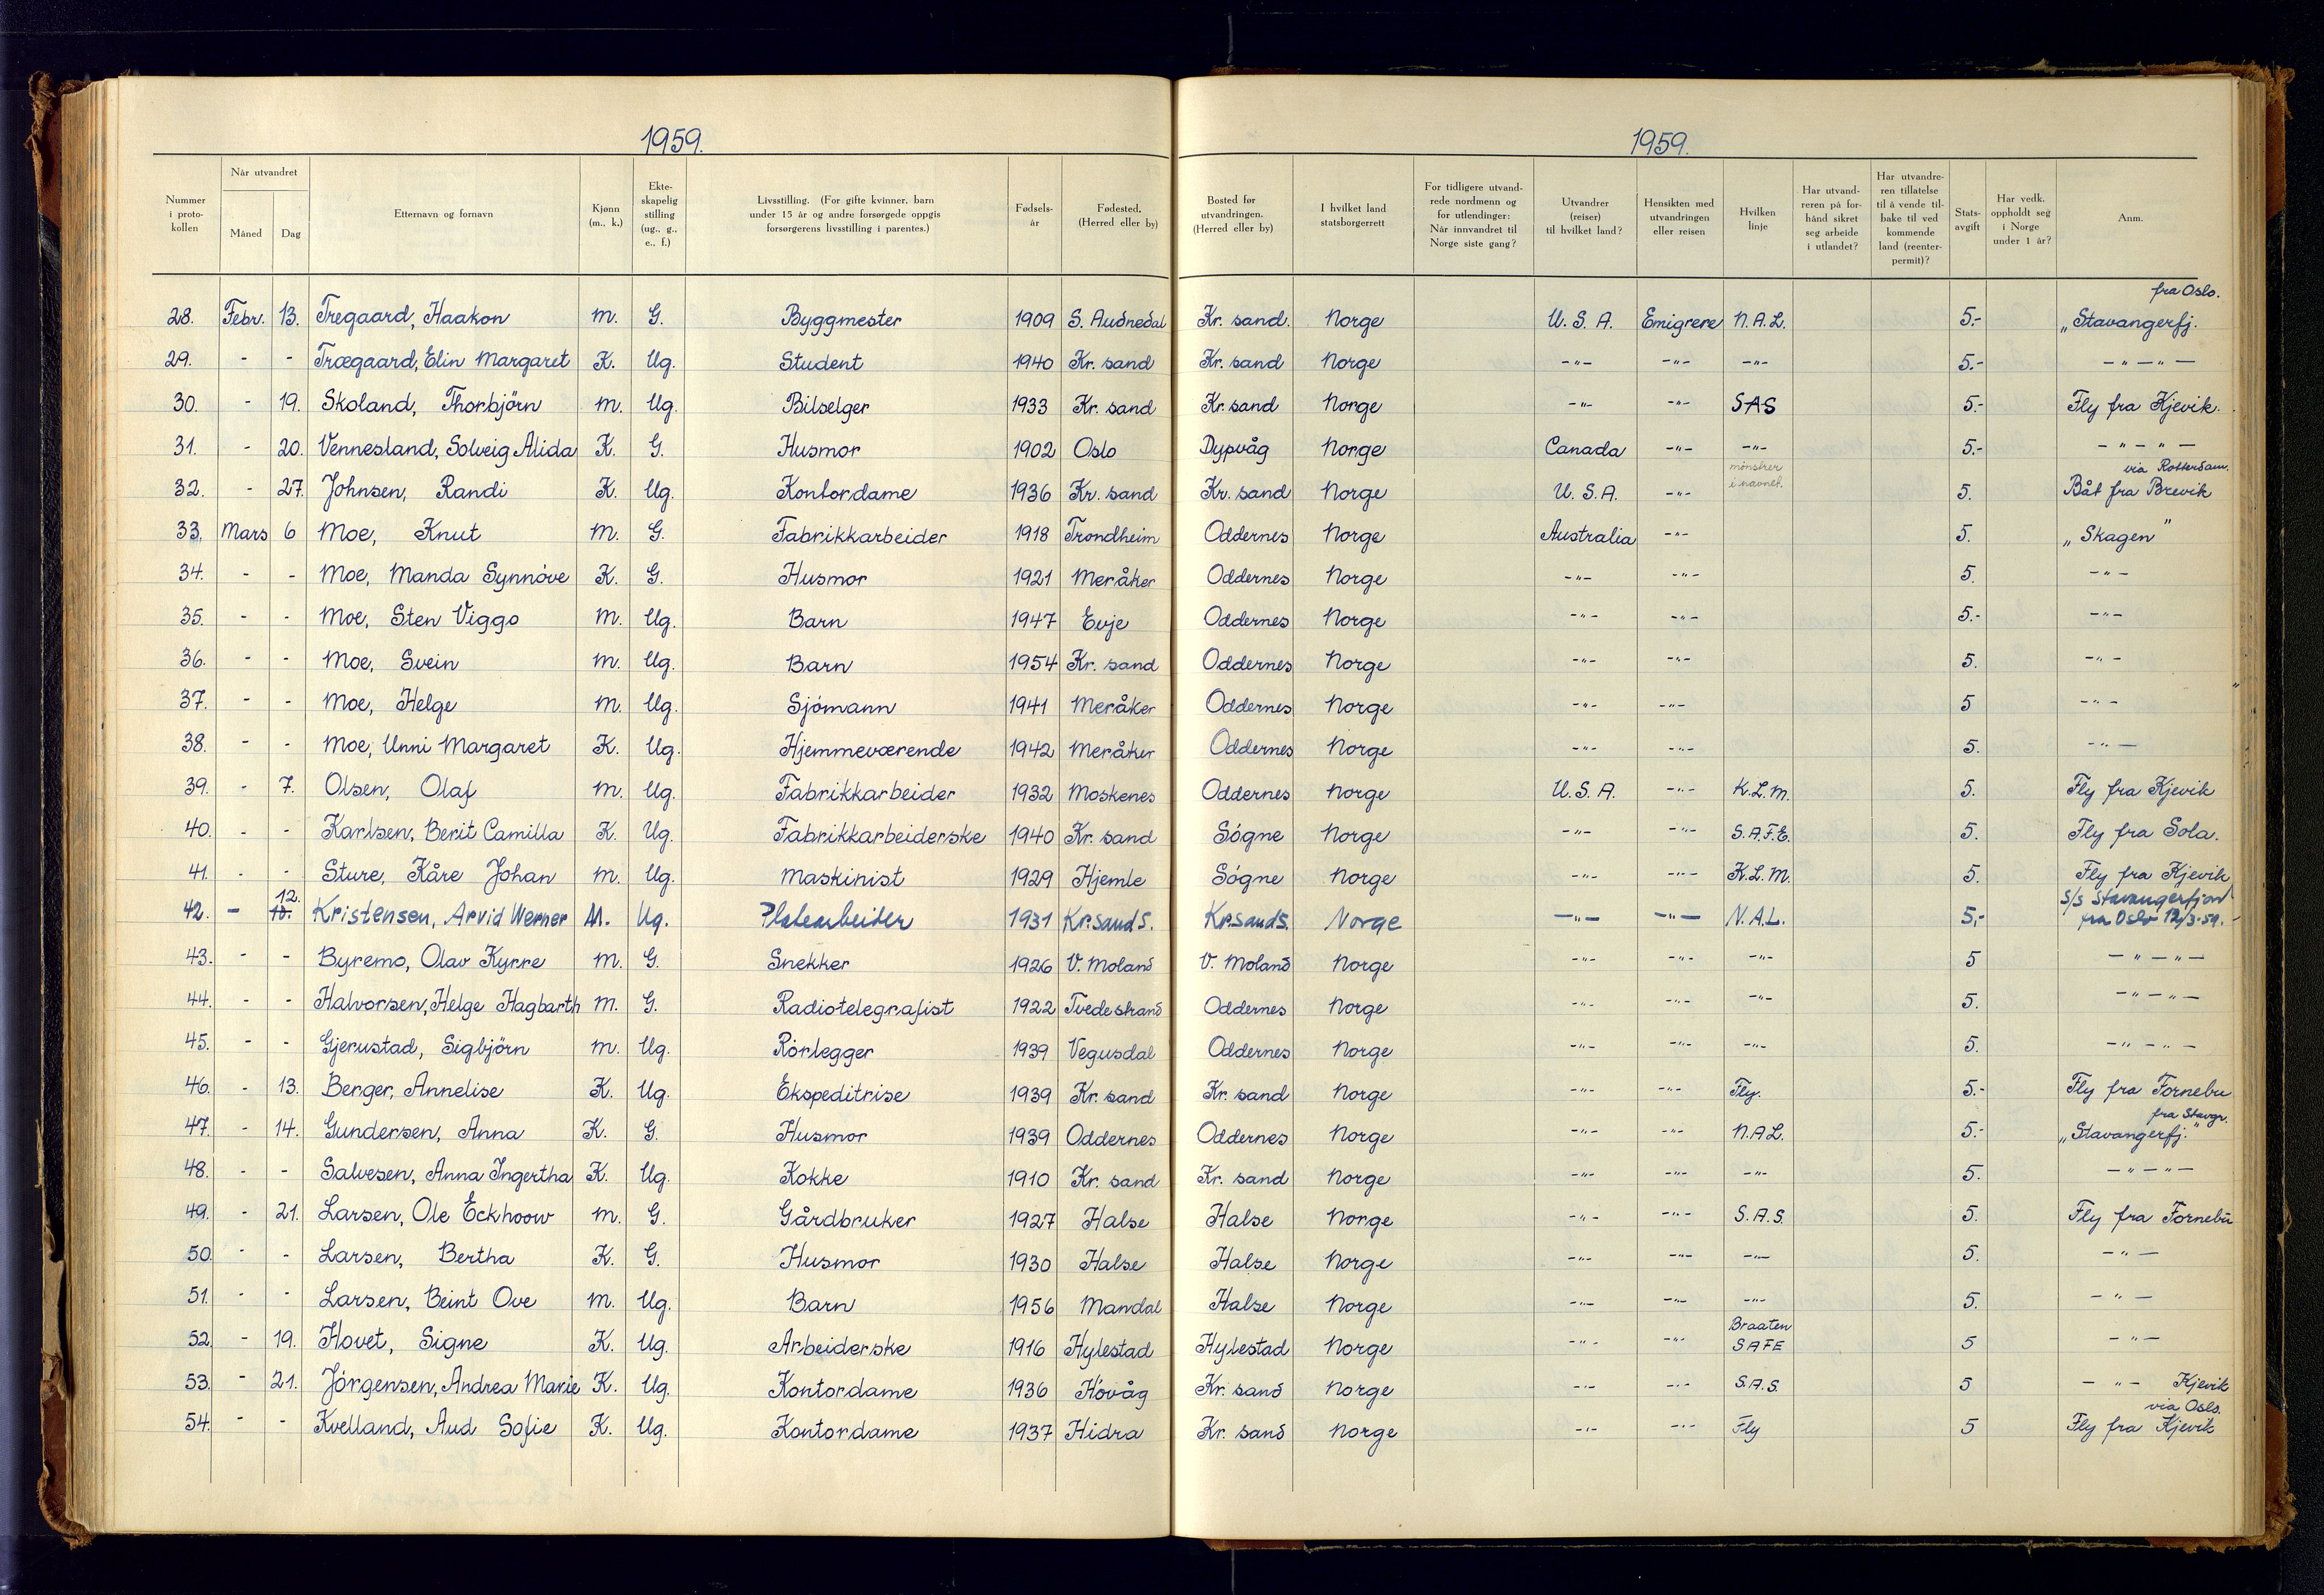 1959.
1959.
Nummer i protokollen | Når utvandret Måned | Dag | Etternavn og fornavn | Kjønn (m., k.) | Ekteskapelig stilling (ug., g., e., f.) | Livsstilling. (For gifte kvinner, barn under 15 år og andre forsørgede oppgis forsørgerens livsstilling i parentes.) | Fødselsår | Fødested. (Herred eller by) | Bosted før utvandringen. (Herred eller by) | I hvilket land statsborgerrett | For tidligere utvandrede nordmenn og for utlendinger: Når innvandret til Norge siste gang? | Utvandrer (reiser) til hvilket land? | Hensikten med utvandringen eller reisen | Hvilken linje | Har utvandreren på forhånd sikret seg arbeide i utlandet? | Har utvandreren tillatelse til å vende tilbake til ved kommende land (reenterpermit)? | Statsavgift | Har vedk. oppholdt seg i Norge under 1 år? | Anm.
28. Febr. 13. Tregaard, Haakon m. G. Byggmester 1909 S. Audnedal Kr. sand. Norge U.S.A. Emigrere N.A.L. 5.- fra Oslo. „Stavangerfj.
29. - - Trægaard, Elin Margaret K. Ug. Student 1940 Kr. sand Kr. sand Norge -"- -"- -"- 5.- -"-"-
30. - 19. Skoland, Thorbjörn m. Ug. Bilselger 1933 Kr. sand Kr. sand Norge -"- -"- SAS 5.- Fly fra Kjevik.
31. - 20. Vennesland, Solveig Alida K. G. Husmor 1902 Oslo Dypvåg Norge Canada -"- -"- 5.- -"-"-
32. - 27. Johnsen, Randi K. Ug. Kontordame 1936 Kr. sand Kr. sand Norge U.S.A. -"- mönstrer i navnet. 5. via Rotterdam. Båt fra Brevik
33. Mars 6 Moe, Knut m. G. Fabrikkarbeider 1918 Trondheim Oddernes Norge Australia -"- 5. „Skagen"
34. - - Moe, Manda Synnöve K. G. Husmor 1921 Meråker Oddernes Norge -"- -"- 5. -"-
35. - - Moe, Sten Viggo m. Ug. Barn 1947 Evje Oddernes Norge -"- -"- 5.- -"-
36. - - Moe, Svein m. Ug. Barn 1954 Kr. sand Oddernes Norge -"- -"- 5. -"-
37. - - Moe, Helge m. Ug. Sjömann 1941 Meråker Oddernes Norge -"- -"- 5 -"-
38. - - Moe, Unni Margaret K. Ug. Hjemmeværende 1942 Meråker Oddernes Norge -"- -"- 5. -"-
39. - 7. Olsen, Olaf m. Ug. Fabrikkarbeider 1932 Moskenes Oddernes Norge U.S.A. -"- K.L.M. 5. Fly fra Kjevik
40. - - Karlsen, Berit Camilla K. Ug. Fabrikkarbeiderske 1940 Kr. sand Sögne Norge -"- -"- S.A.F.E. 5. Fly fra Sola.
41. - - Sture, Kåre Johan m. Ug. Maskinist 1929 Hjemle Sögne Norge -"- -"- K.L.M. 5. Fly fra Kjevik
42. - 12. Kristensen, Arvid Werner M. Ug. Platearbeider 1931 Kr.sand S. Kr.sand S. Norge -"- -"- N.A.L. 5,- S/S Stavangerfjord fra Oslo 12/3-59.
43. - - Byremo, Olav Kyrre m. G. Snekker 1926 V. Moland V. Moland Norge -"- -"- -"- 5 -"-"-
44. - - Halvorsen, Helge Hagbarth m. G. Radiotelegrafist 1922 Tvedestrand Oddernes Norge -"- -"- -"- 5. -"-"-
45. - - Gjerustad, Sigbjörn m. Ug. Rörlegger 1939 Vegusdal Oddernes Norge -"- -"- -"- 5. -"-"-
46. - 13. Berger, Annelise K. Ug. Ekspeditrise 1939 Kr. sand Kr. sand Norge -"- -"- Fly. 5.- Fly fra Fornebu
47. - 14. Gundersen, Anna K. G. Husmor 1939 Oddernes Oddernes Norge -"- -"- N.A.L. 5.- fra Stavgr. „Stavangerfj."
48. - - Salvesen, Anna Ingertha K. Ug. Kokke 1910 Kr. sand Kr. sand Norge -"- -"- -"- 5. -"-"-
49. - 21. Larsen, Ole Eckhoow m. G. Gårdbruker 1927 Halse Halse Norge -"- -"- S.A.S. 5. Fly fra Fornebu
50. - - Larsen, Bertha K. G. Husmor 1930 Halse Halse Norge -"- -"- -"- 5. -"-
51. - - Larsen, Beint Ove m. Ug. Barn 1956 Mandal Halse Norge -"- -"- -"- 5. -"-
52. - 19. Hovet, Signe K. Ug. Arbeiderske 1916 Hylestad Hylestad Norge -"- -"- Braaten SAFE 5 -"-
53. - 21. Jörgensen, Andrea Marie K. Ug. Kontordame 1936 Hövåg Kr. sand Norge -"- -"- S.A.S. 5 -"- Kjevik
54. - - Kvelland, Aud Sofie K. Ug. Kontordame 1937 Hidra Kr. sand Norge -"- -"- Fly 5 via Oslo. Fly fra Kjevik